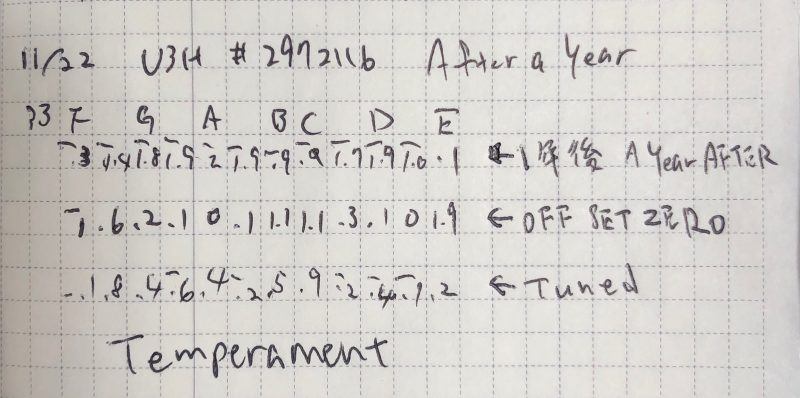 11/22 U3H # 2972116 After a Year
33 F G A B C D E
-.3 -1.4 -1.8 -1.9 -2 -1.9 -.9 -.9 -1.7 -1.9 -1.0 .1 ← 1年後 A Year AFTER
-1 .6 .2 .1 0 .1 1.1 1.1 .3 .1 0 1.9 ← OFF SET ZERO
-.1 .8 .4 -.6 .4 -.2 .5 .9 -.2 -.4 -.1 .2 ← Tuned
Temperament